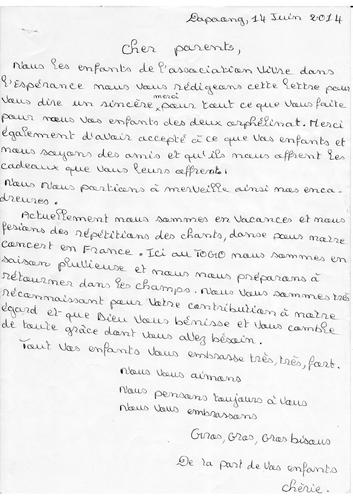 Dapaong, 14 Juin 2014
Cher parents,
Nous les enfants de l'association Vivre dans
l'Espérance nous vous rédigeons cette lettre pour
vous dire un sincère merci pour tout ce que vous faite
pour nous vos enfants des deux orphélinat. Merci
également d'avoir accepté à ce que vos enfants et
nous soyons des amis et qu'ils nous offrent les
cadeaux que vous leurs offrent.
Nous nous portions à merveille ainsi nos enca-
dreures.
Actuellement nous sommes en vacances et nous
fesions des répétitions des chants, danse pour notre
concert en France. Ici au TOGO nous sommes en
saison pluvieuse et nous nous préparons à
rétourner dans les champs. Nous vous sommes très
réconnaissant pour votre contribution à notre
égard et que Dieu vous bénisse et vous comble
de toute grâce dont vous allez bésoin.
Tout vos enfants vous embrasse très, très, fort.
Nous vous aimons
Nous pensons toujours à vous
Nous vous embrassons
Gros, Gros, Gros bisous
De la part de vos enfants
chérie.